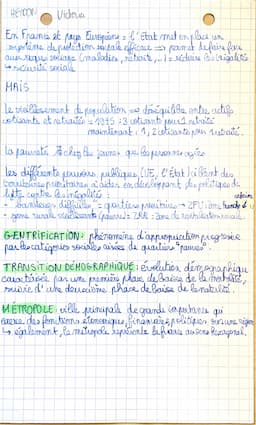 HENON Victoria
En France et pays Européens = l'Etat met en place un
système de protection sociale efficace => permet de faire face
aux risques sociaux (maladies, retraite, ..) + réduire les inégalités
↳ sécurité sociale
MAIS
Le vieillissement de population => déséquilibre entre actifs
cotisants et retraités = 1975 : 3 cotisants pour 1 retraité
maintenant : 1,2 cotisants pour 1 retraité.
La pauvreté ↗ chez les jeunes que les personnes agées
Les différents pouvoirs publiques (UE, l'Etat) ciblent des
territoires prioritaires à aider en développant des politiques de
lutte contre les inégalités :
- banlieues difficiles = quartiers prioritaires → ZFU : zone franche
- zone rurale vieillissante (pauvre) = ZRR : zone de revitalisation rurale
GENTRIFICATION : phénomène d'appropriation progressive
par les catégories sociales aisées de quartiers "pauvres".
TRANSITION DÉMOGRAPHIQUE : évolution démographique
caractérisée par une première phase de baisse de la mortalité,
suivie d'une deuxième phase de baisse de la natalité.
MÉTROPOLE : ville principale de grande importance qui
exerce des fonctions économiques, financières, politiques, sur une région
↳ également, la métropole représente la France au sens hexagonal.